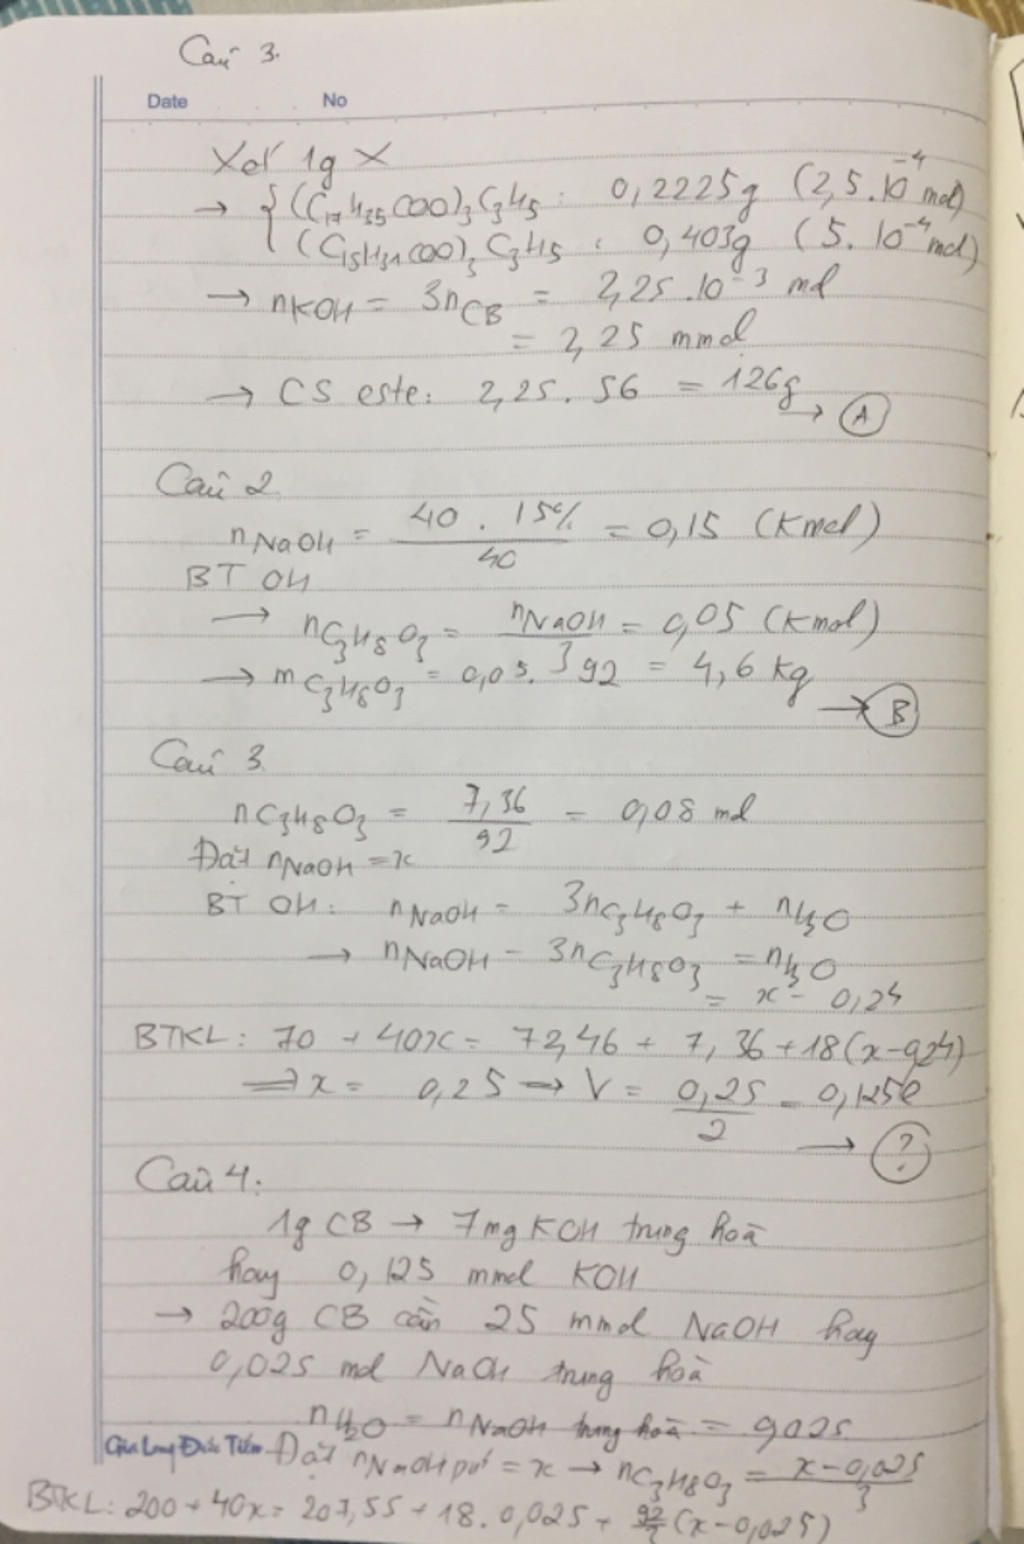 Câu 3.
Date No
Xét 1g X
→ { (C₁₇H₃₅COO)₃C₃H₅ : 0,2225g (2,5.10⁻⁴ mol)
(C₁₅H₃₁COO)₃C₃H₅ : 0,403g (5.10⁻⁴ mol)
→ nKOH = 3nCB = 2,25.10⁻³ mol
= 2,25 mmol
→ CS este: 2,25.56 = 126g → A
Câu 2
nNaOH = 40.15% / 40 = 0,15 (Kmol)
BT OH
→ nC₃H₈O₃ = nNaOH / 3 = 0,05 (Kmol)
→ mC₃H₈O₃ = 0,05.92 = 4,6 kg → B
Câu 3
nC₃H₈O₃ = 7,36 / 92 = 0,08 mol
Đặt nNaOH = x
BT OH: nNaOH = 3nC₃H₈O₃ + nH₂O
→ nNaOH - 3nC₃H₈O₃ = nH₂O
= x - 0,24
BTKL: 70 + 40x = 72,46 + 7,36 + 18(x-0,24)
⇒ x = 0,25 → V = 0,25 / 2 = 0,125l
→ ?
Câu 4:
1g CB → 7mg KOH trung hoà
hay 0,125 mmol KOH
→ 200g CB cần 25 mmol NaOH hay
0,025 mol NaOH trung hoà
nH₂O = nNaOH trung hoà = 0,025
Gia Long Đức Tiến Đặt nNaOH pư = x → nC₃H₈O₃ = x-0,025 / 3
BTKL: 200 + 40x = 207,55 + 18.0,025 + 92/3 (x-0,025)